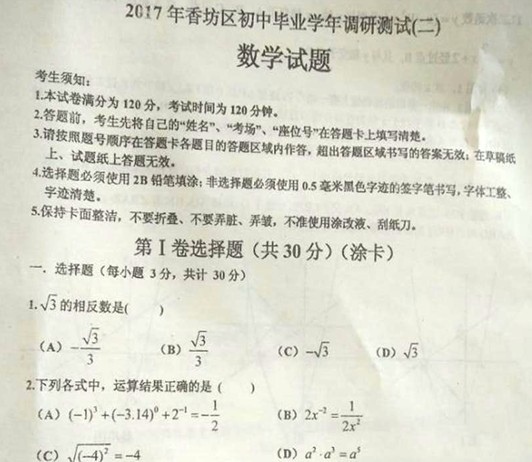 2017 年香坊区初中毕业学年调研测试(二)
数学试题
考生须知:
1.本试卷满分为 120 分，考试时间为 120 分钟。
2.答题前，考生先将自己的“姓名”、“考场”、“座位号”在答题卡上填写清楚。
3.请按照题号顺序在答题卡各题目的答题区域内作答，超出答题区域书写的答案无效；在草稿纸
上、试题纸上答题无效。
4.选择题必须使用 2B 铅笔填涂；非选择题必须使用 0.5 毫米黑色字迹的签字笔书写，字体工整、
字迹清楚。
5.保持卡面整洁，不要折叠、不要弄脏、弄皱，不准使用涂改液、刮纸刀。
第 I 卷选择题（共 30 分）（涂卡）
一．选择题（每小题 3 分，共计 30 分）
1.√3 的相反数是( )
（A）-√3/3 （B）√3/3 （C）-√3 （D）√3
2.下列各式中，运算结果正确的是（ ）
（A）(-1)³+(-3.14)⁰+2⁻¹=-1/2 （B）2x⁻²=1/2x²
（C）√(-4)²=-4 （D）a²·a³=a⁵